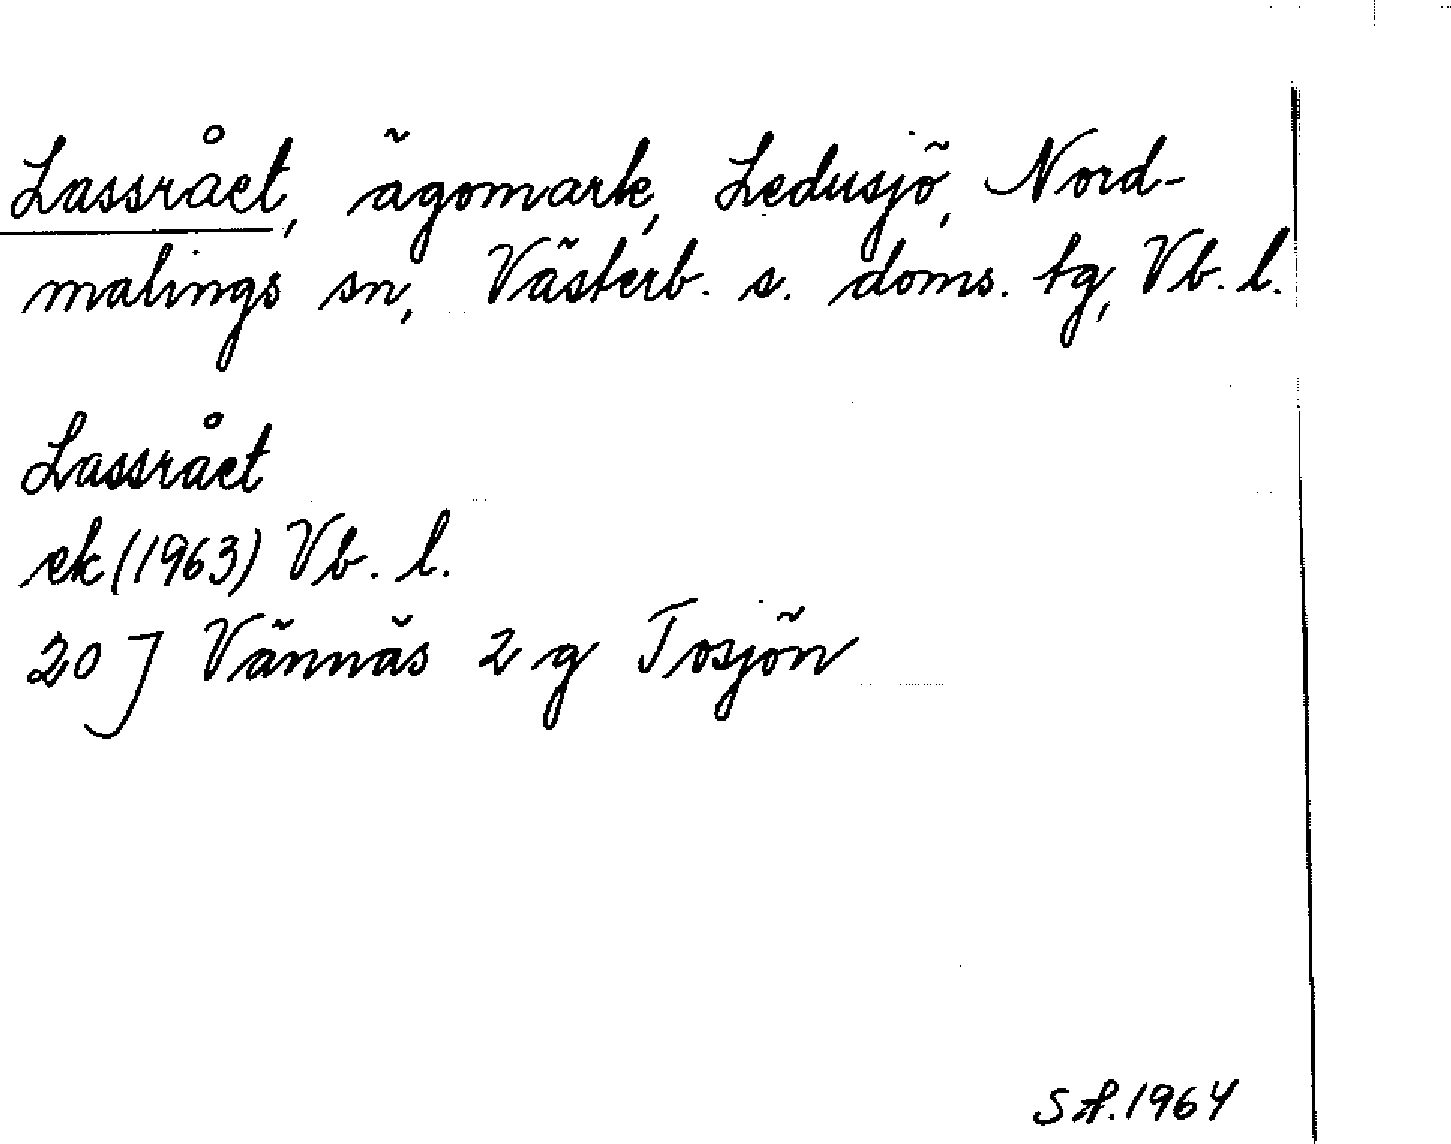 Lassrået, ägomark, Ledusjö, Nord-
malings sn, Västerb. s. doms. tg, Vb. l.
Lassrået
ek (1963) Vb. l.
20 J Vännäs 2 g Tosjön
SA. 1964